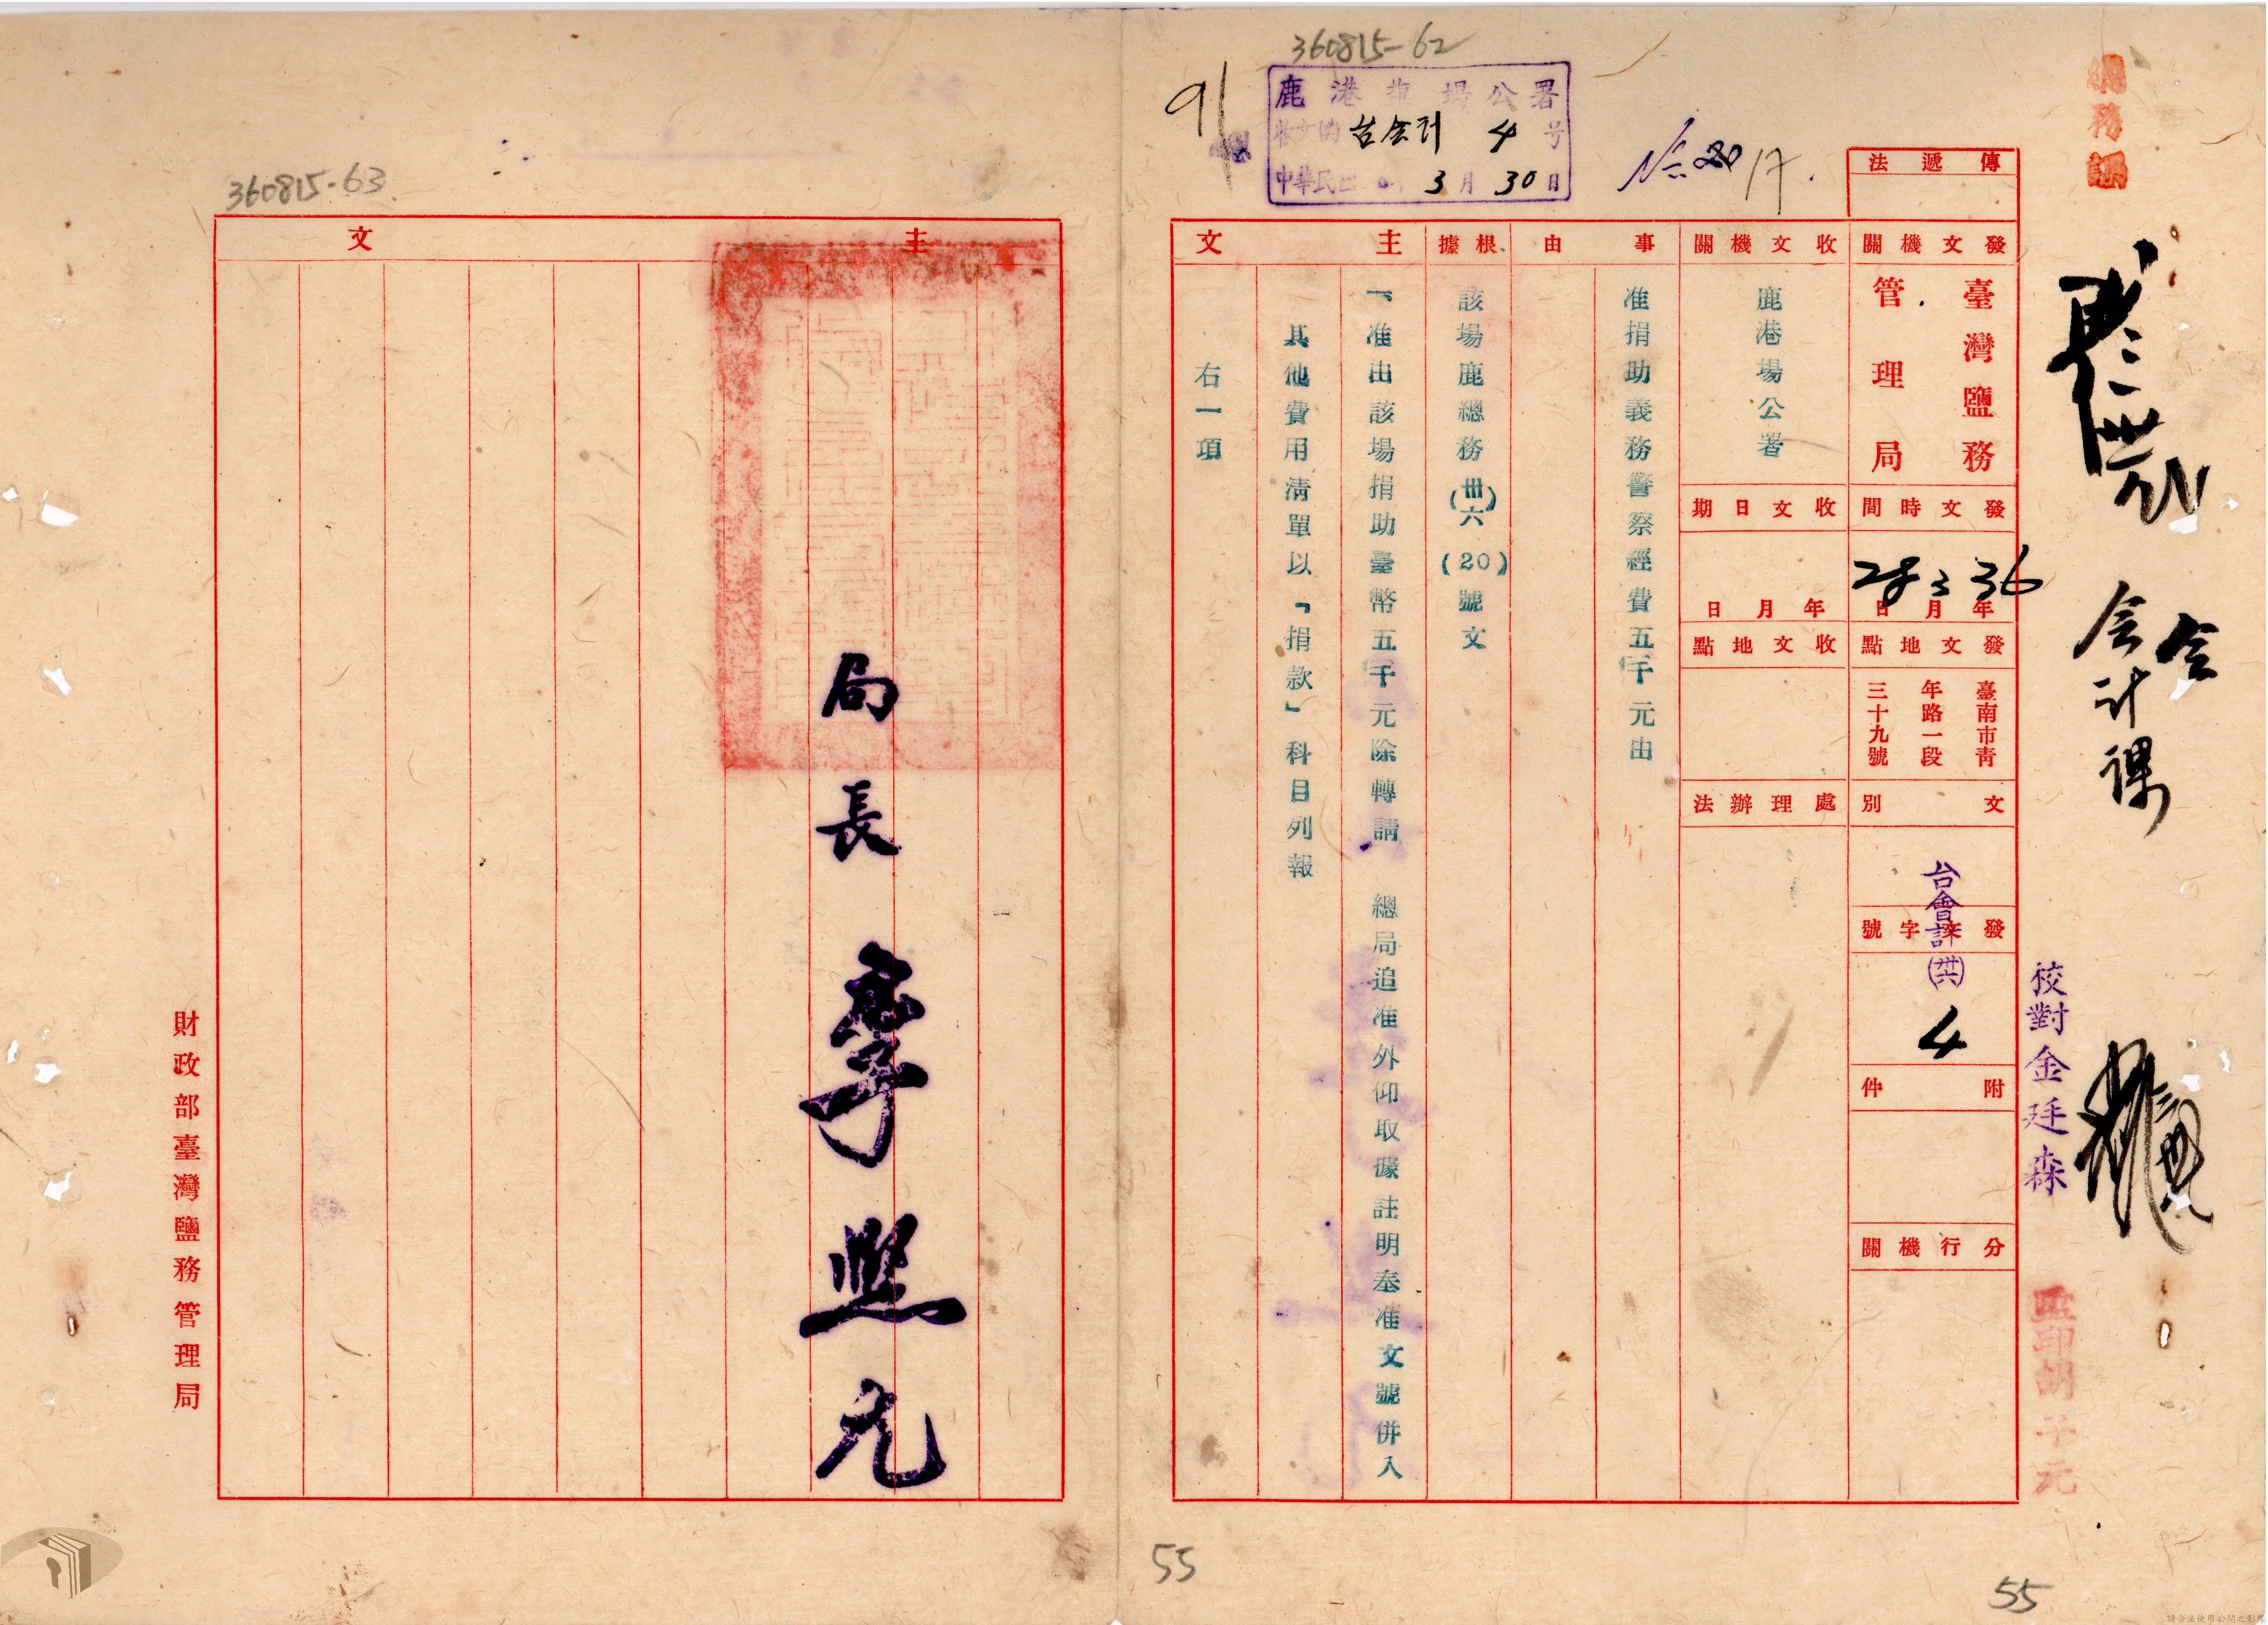 360815-62
鹿港 場公署
收文 台会计 4 号
中華民國 3月30日
91
360815-63
傳遞法
發文機關
臺灣鹽務
管理局
發文時間
36年3月28日
發文地點
臺南市青
年路一段
三十九號
文別
台會計
發文字號
(卅六)
4
附件
分行機關
收文機關
鹿港場公署
收文日期
年月日
收文地點
處理辦法
事由
准捐助義務警察經費五千元由
根據
該場鹿總務(卅六)(20)號文
主文
一、准由該場捐助臺幣五千元除轉請 總局追准外仰取據註明奉准文號併入
其他費用清單以「捐款」科目列報
右一項
会计課
校對金廷森
監印胡子元
主文
局長 李熙元
財政部臺灣鹽務管理局
55
55
請合法使用公開之影像